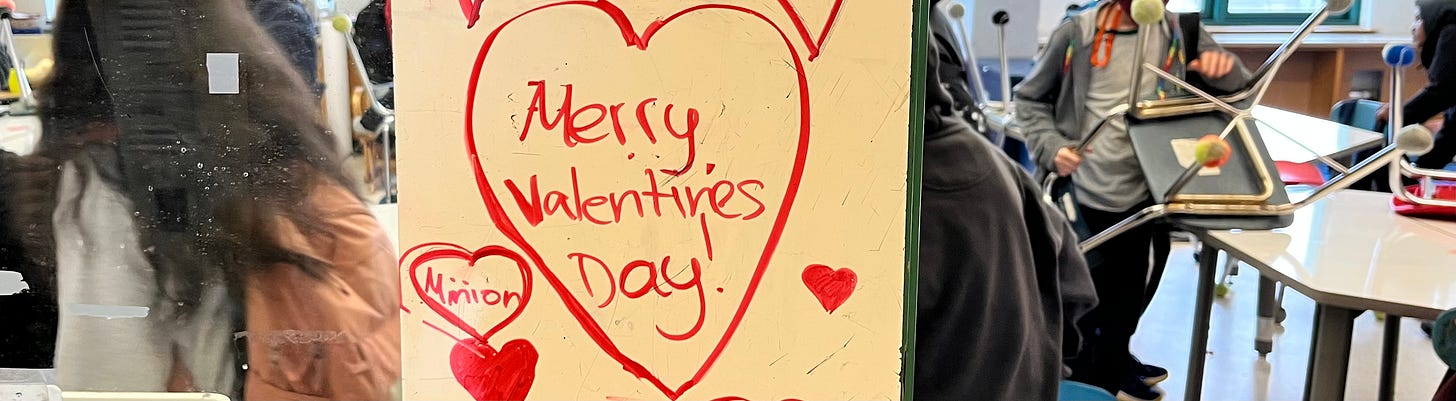 Merry
Valentine's
Day!
Minion